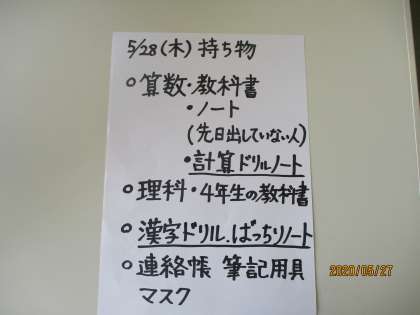 5/28(木)持ち物
○算数・教科書
・ノート
(先日出していない人)
・計算ドリルノート
○理科・4年生の教科書
○漢字ドリル.ばっちりノート
○連絡帳 筆記用具
マスク
2020/05/27